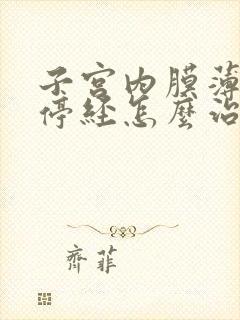 子宫内膜薄
停经怎麼治
齊菲